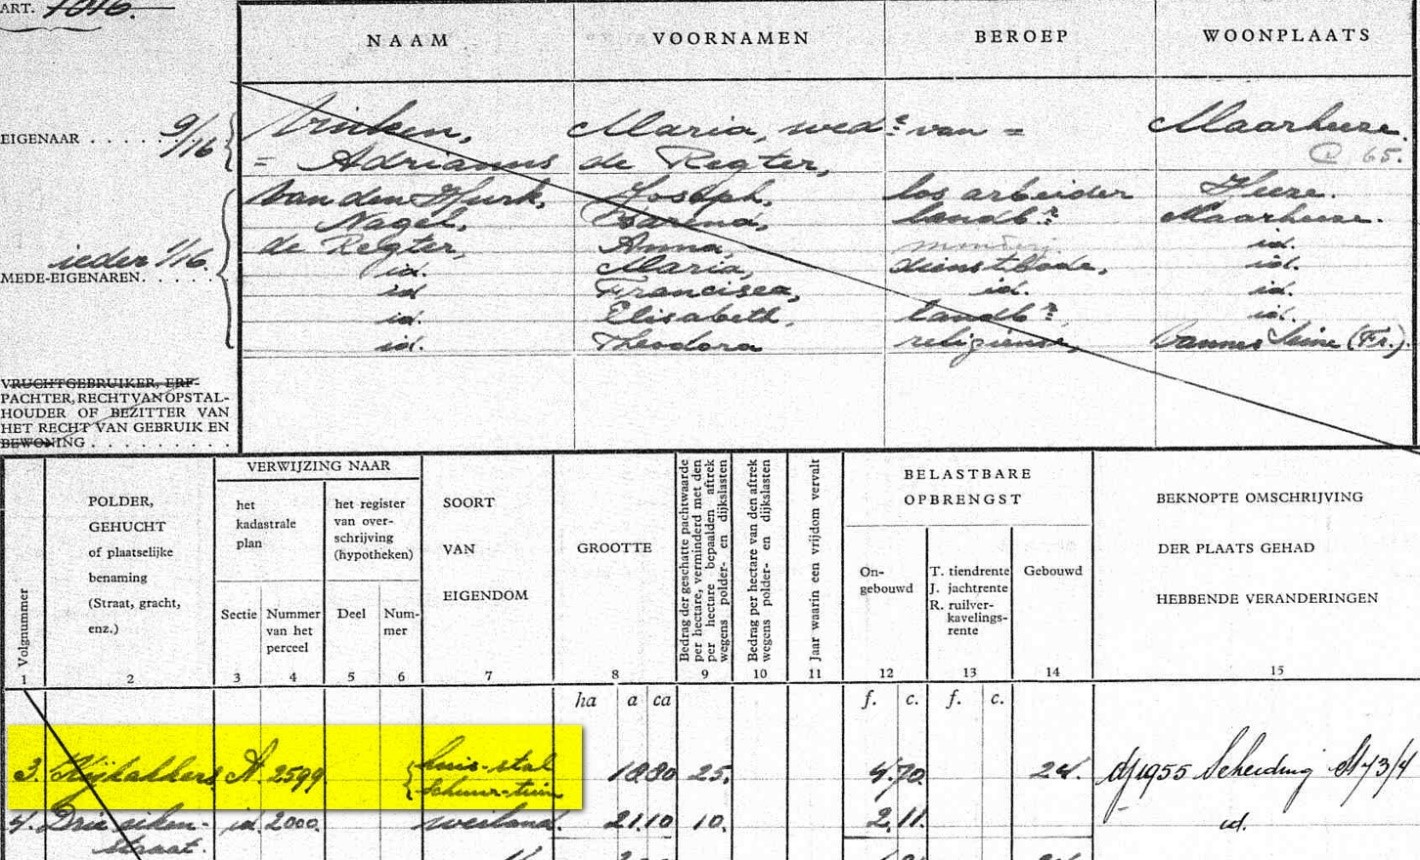 ART. 1016.
NAAM VOORNAMEN BEROEP WOONPLAATS
EIGENAAR . . . . . 9/16 Vinken, Maria, wede van = Maarheeze.
= Adrianus de Regter, 65.
van den Hurk, Joseph, los arbeider Heeze.
Nagel, landbr Maarheeze.
de Regter, Anna, id.
ieder 1/16. id. Maria, dienstbode, id.
MEDE-EIGENAREN. . . . . id Francisca, id. id.
id. Elisabeth, landbr id.
id. Theodora religieuse, (Fr.).
VRUCHTGEBRUIKER, ERF-
PACHTER, RECHT VAN OPSTAL-
HOUDER OF BEZITTER VAN
HET RECHT VAN GEBRUIK EN
BEWONING . . . . . . . . .
Volgnummer
1
POLDER,
GEHUCHT
of plaatselijke
benaming
(Straat, gracht,
enz.)
2
VERWIJZING NAAR
het
kadastrale
plan
Sectie
3
Nummer
van het
perceel
4
het register
van over-
schrijving
(hypotheken)
Deel
5
Num-
mer
6
SOORT
VAN
EIGENDOM
7
GROOTTE
8
Bedrag der geschatte pachtwaarde
per hectare, verminderd met den
per hectare bepaalden aftrek
wegens polder- en dijkslasten
9
Bedrag per hectare van den aftrek
wegens polder- en dijkslasten
10
Jaar waarin een vrijdom vervalt
11
BELASTBARE
OPBRENGST
On-
gebouwd
12
T. tiendrente
J. jachtrente
R. ruilver-
kavelings-
rente
13
Gebouwd
14
BEKNOPTE OMSCHRIJVING
DER PLAATS GEHAD
HEBBENDE VERANDERINGEN
15
ha a ca f. c. f. c.
3. Kijkakkers A. 2599. huis-stal 18 80 25. 4.70. 24. dj 1955 Scheiding 73/4
schuur-tuin
4. Drie eiken- id. 2000. weiland. 21 10 10. 2.11. id.
straat.